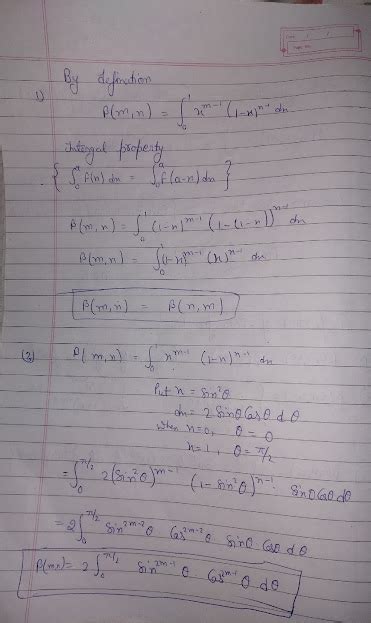 By definition
1) β(m,n) = ∫₀¹ x^{m-1} (1-x)^{n-1} dx
Intergal property
{ ∫₀^a f(x) dx = ∫₀^a f(a-x) dx }
β(m,n) = ∫₀¹ (1-x)^{m-1} (1-(1-x))^{n-1} dx
β(m,n) = ∫₀¹ (1-x)^{m-1} (x)^{n-1} dx
β(m,n) = β(n,m)
(2) β(m,n) = ∫₀¹ x^{m-1} (1-x)^{n-1} dx
Put x = sin²θ
dx = 2 sinθ cosθ dθ
when x=0, θ = 0
x=1, θ = π/2
= ∫₀^{π/2} 2(sin²θ)^{m-1} (1-sin²θ)^{n-1}. sinθ cosθ dθ
= 2∫₀^{π/2} sin^{2m-2}θ cos^{2n-2}θ sinθ cosθ dθ
β(m,n) = 2∫₀^{π/2} sin^{2m-1}θ cos^{2n-1}θ dθ